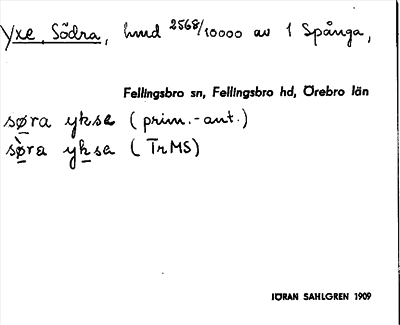 Yxe, Södra, hmd 2568/10000 av 1 Spånga,
Fellingsbro sn, Fellingsbro hd, Örebro län
søra yksa (prim.-ant.)
sø̀ra yksa (TrMS)
JÖRAN SAHLGREN 1909